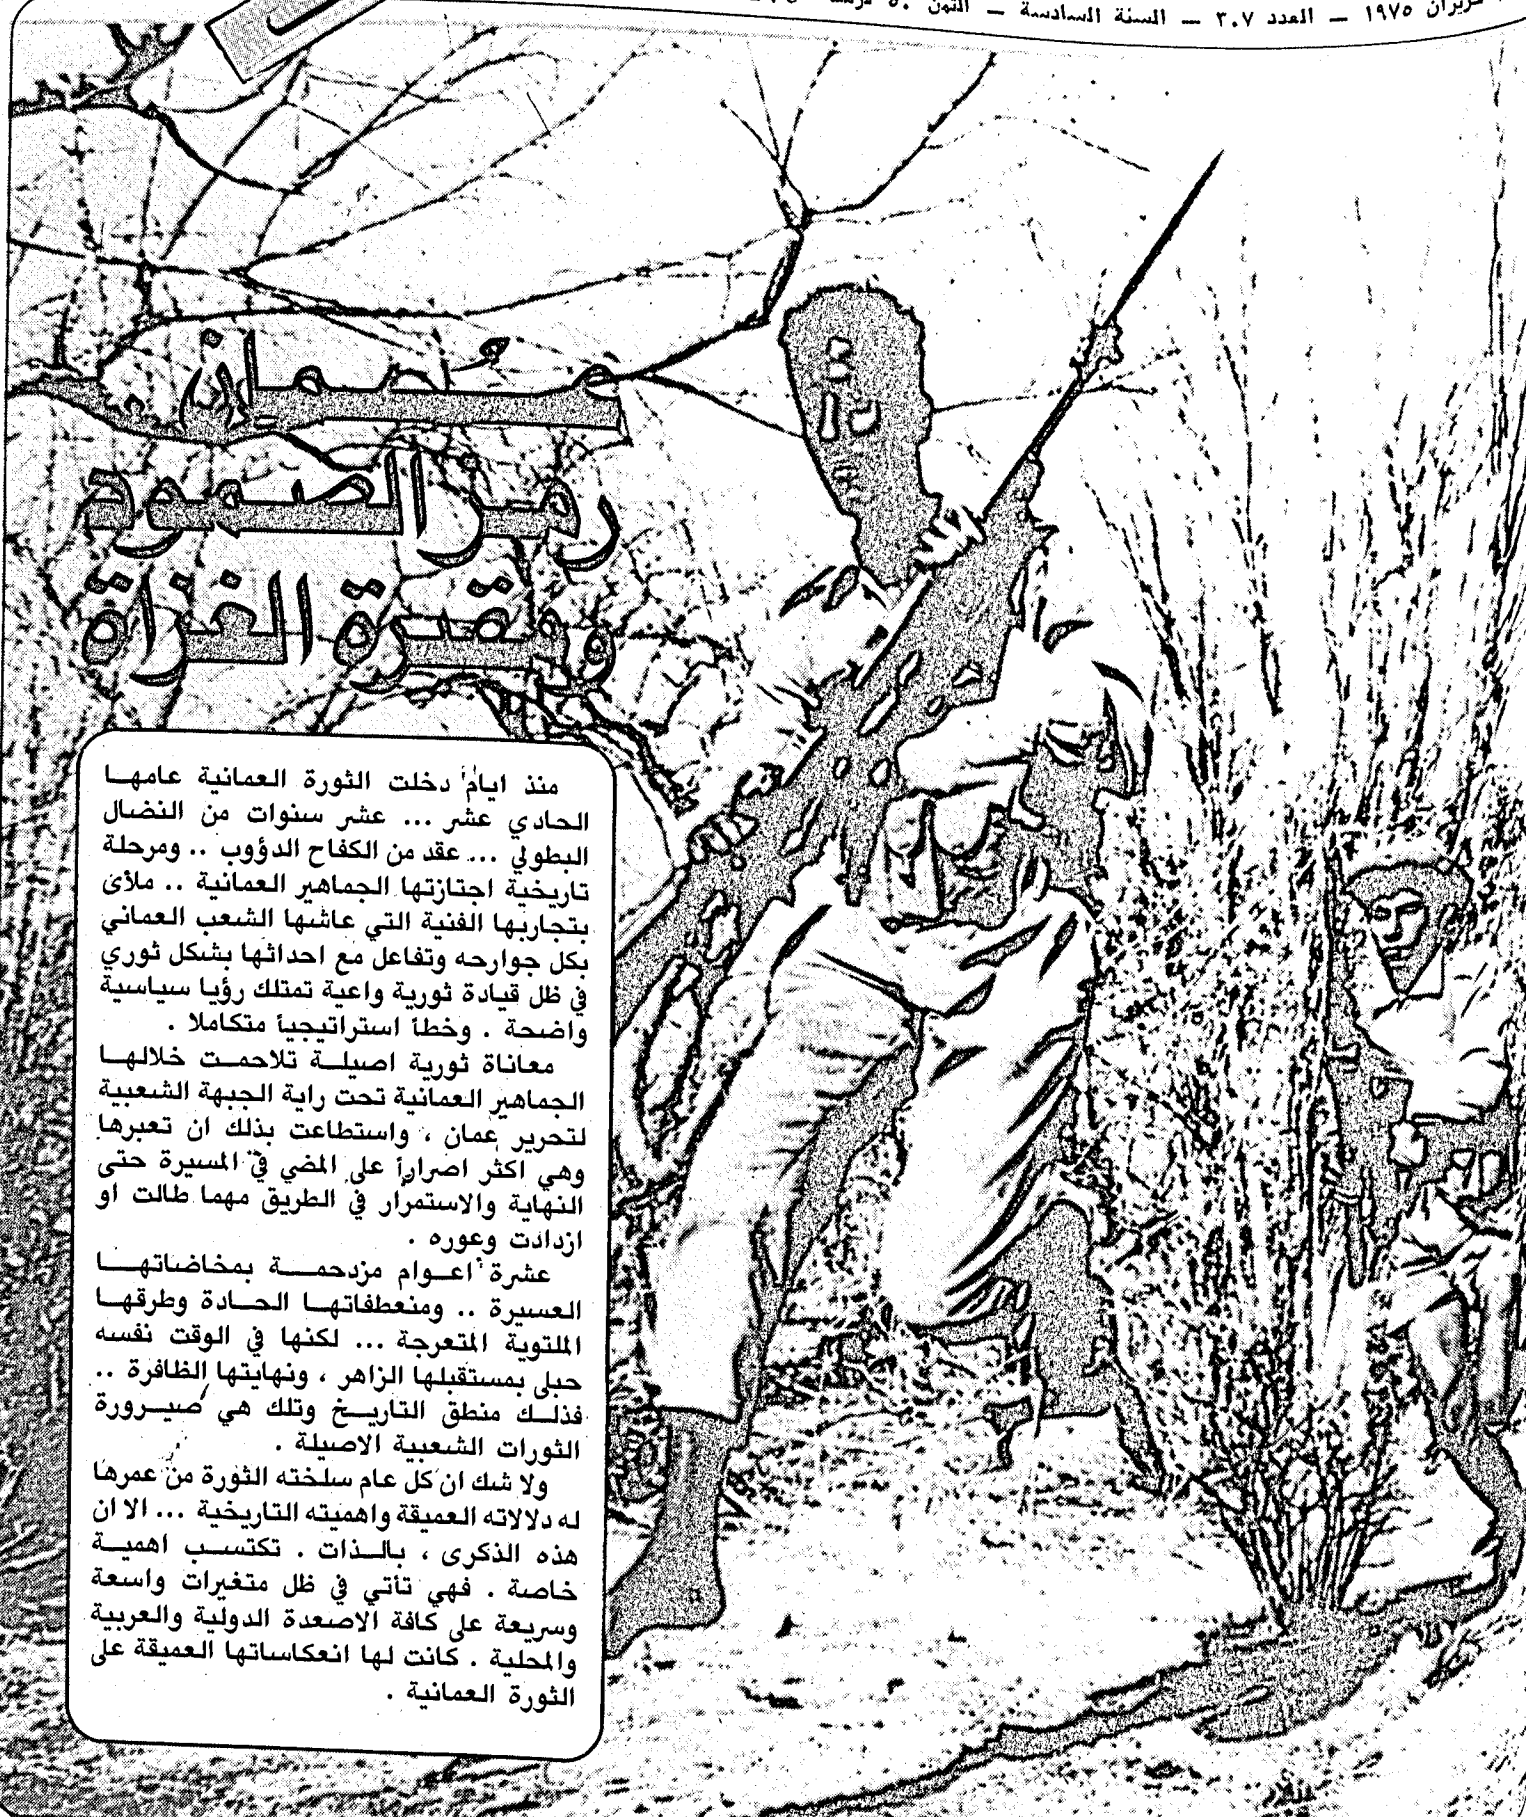 حزيران ١٩٧٥ — العدد ٣٠٧ — السنة السادسة — الثمن ٥٠
عُمان
رمز الصمود
ومقبرة الغزاة
منذ ايام دخلت الثورة العمانية عامهـا
الحادي عشر ... عشر سنوات من النضال
البطولي ... عقد من الكفاح الدؤوب .. ومرحلة
تاريخية اجتازتها الجماهير العمانية .. ملأى
بتجاربها الفنية التي عاشها الشعب العماني
بكل جوارحه وتفاعل مع احداثها بشكل ثوري
في ظل قيادة ثورية واعية تمتلك رؤيا سياسية
واضحة . وخطا استراتيجيا متكاملا .
معاناة ثورية اصيلـة تلاحمـت خلالهـا
الجماهير العمانية تحت راية الجبهة الشعبية
لتحرير عمان ، واستطاعت بذلك ان تعبرها
وهي اكثر اصرارا على المضي في المسيرة حتى
النهاية والاستمرار في الطريق مهما طالت او
ازدادت وعوره .
عشرة اعـوام مزدحمـة بمخاضاتهـا
العسيرة .. ومنعطفاتهـا الحـادة وطرقهـا
الملتوية المتعرجة ... لكنها في الوقت نفسه
حبلى بمستقبلها الزاهر ، ونهايتها الظافرة ..
فذلـك منطق التاريـخ وتلك هي صيـرورة
الثورات الشعبية الاصيلة .
ولا شك ان كل عام سلخته الثورة من عمرها
له دلالاته العميقة واهميته التاريخية ... الا ان
هذه الذكرى ، بالـذات . تكتسـب اهميـة
خاصة . فهي تأتي في ظل متغيرات واسعة
وسريعة على كافة الاصعدة الدولية والعربية
والمحلية . كانت لها انعكاساتها العميقة على
الثورة العمانية .